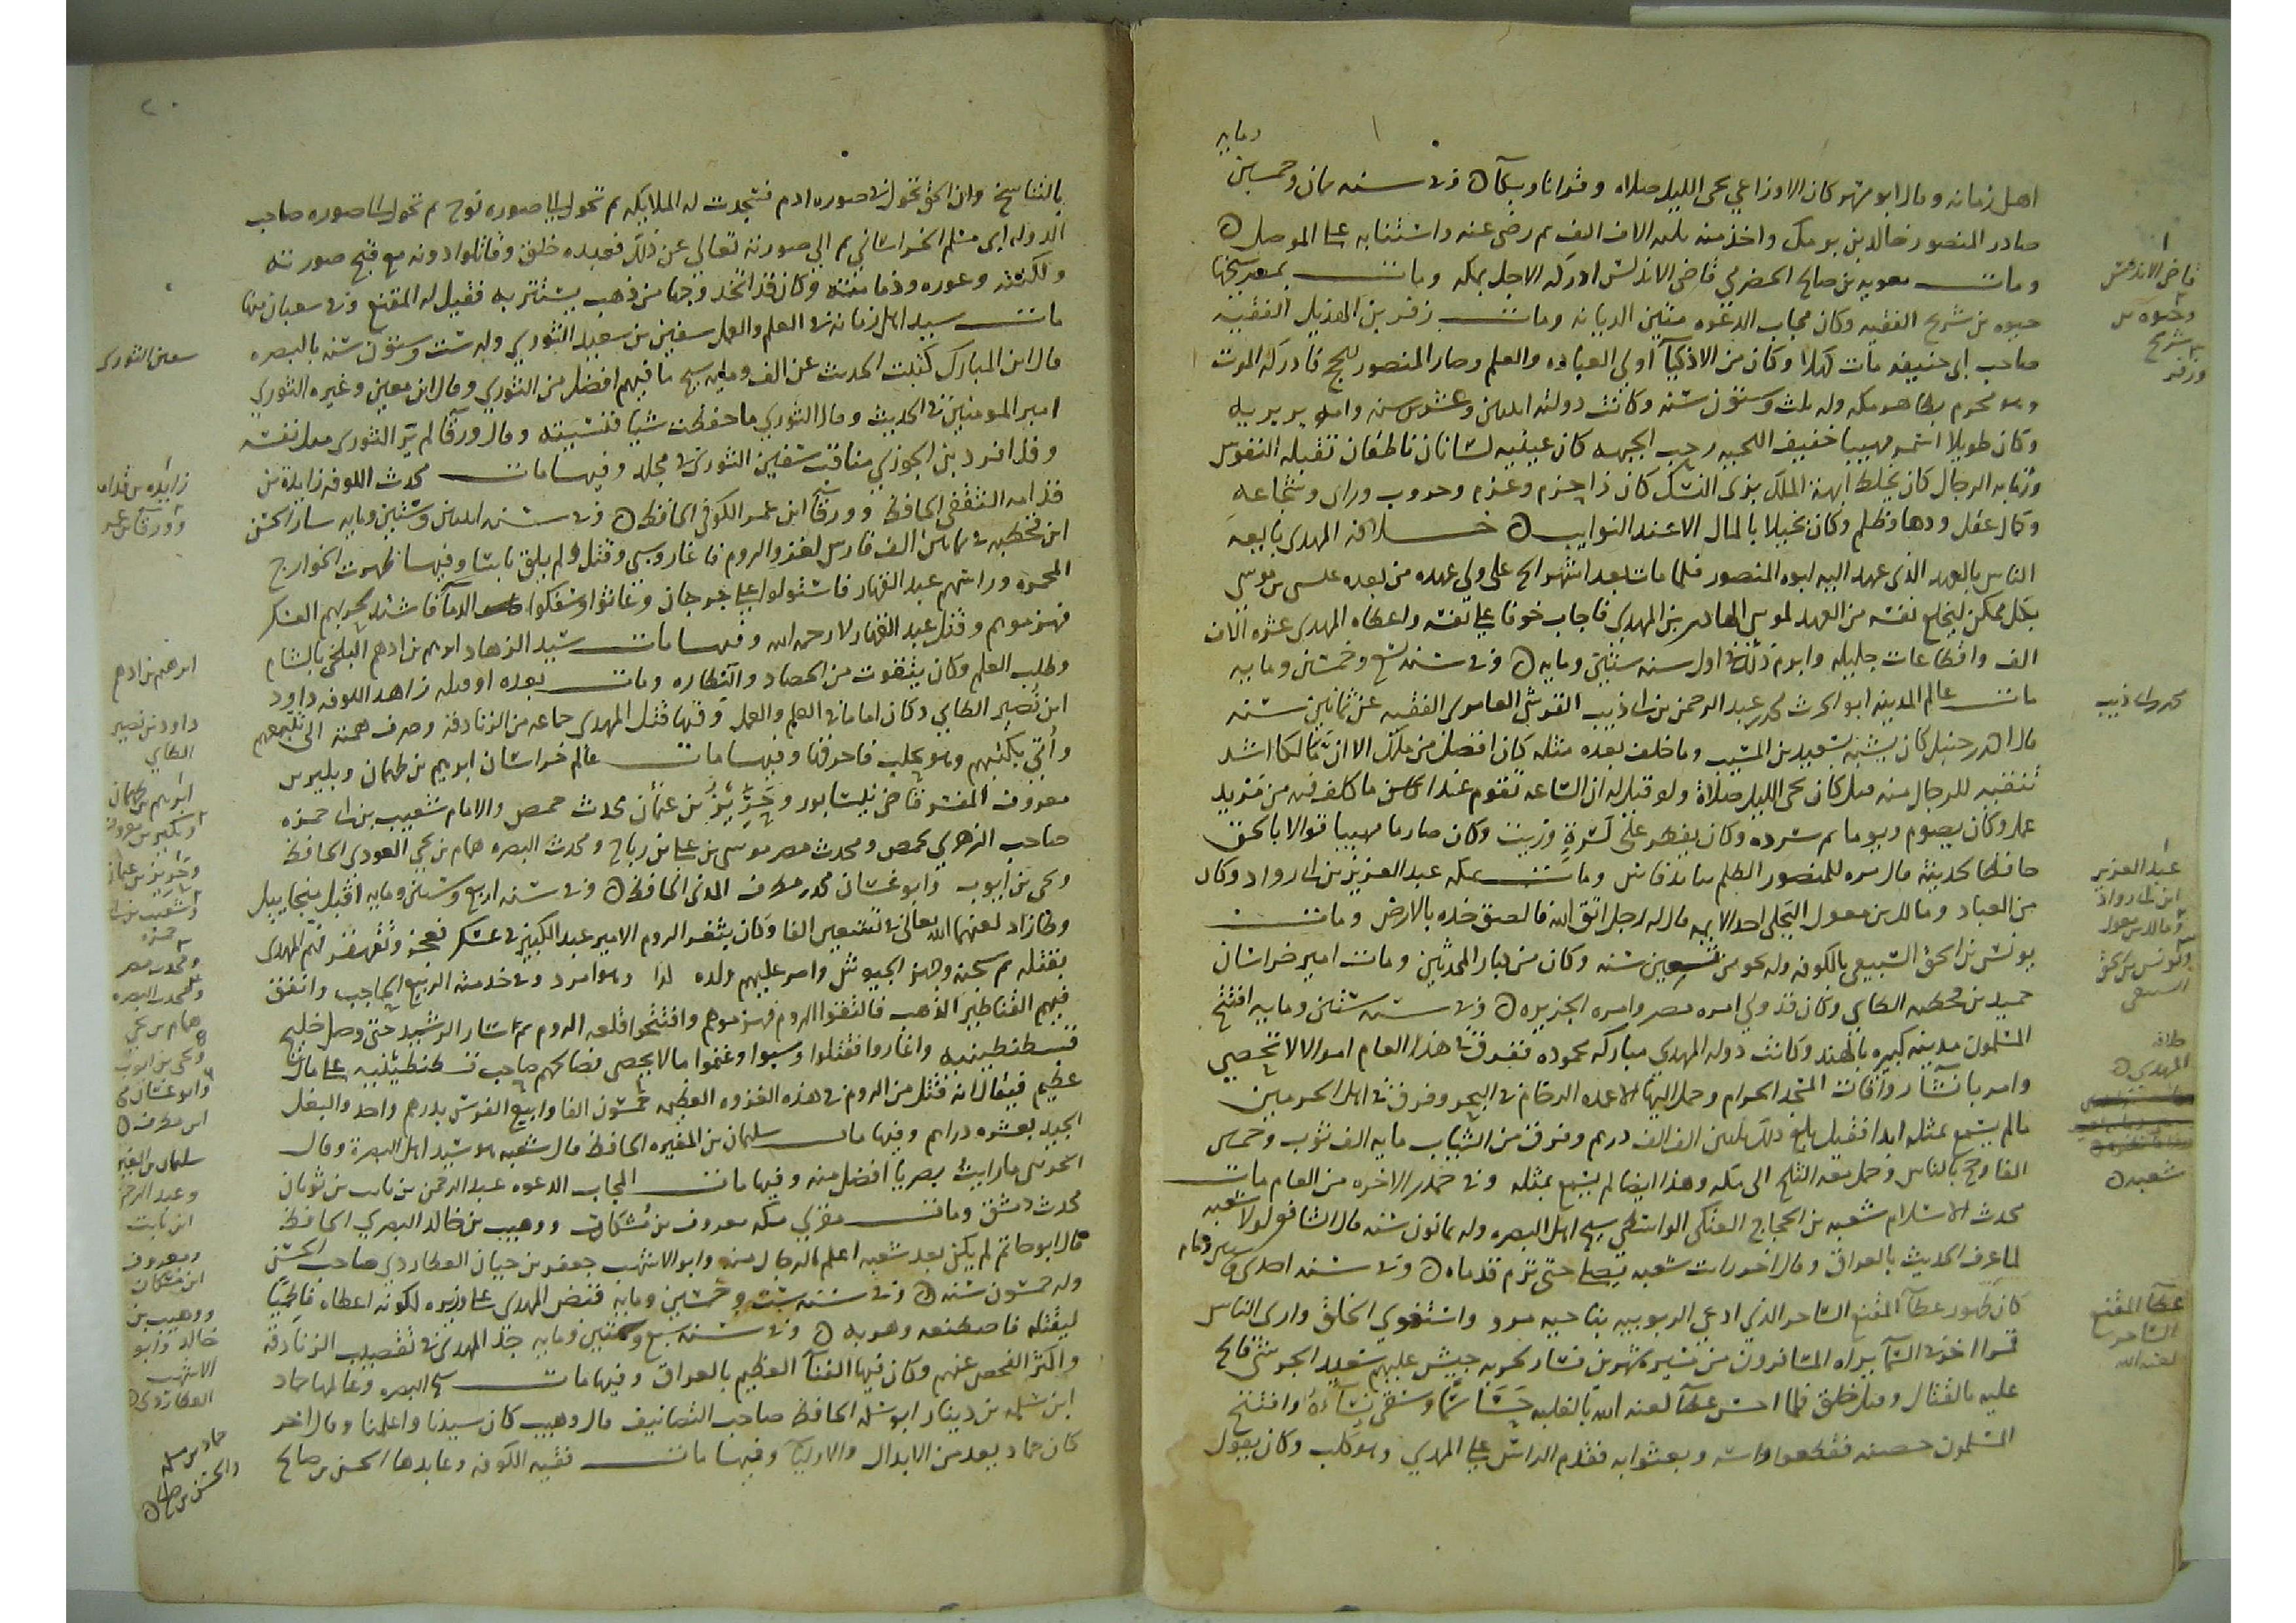 ومايه
اهل زمانه وقال ابو مسهر كان الاوزاعي يحيى الليل صلاه وقرانا وبكآ وفي سنه ثمان وخمسين
صادر المنصور خالد بن برمك واخذ منه ثلثه الاف الف ثم رضي عنه واستنابه على الموصل
وماتــــ معويه بن صالح الحضرمي قاضي الاندلس ادركه الاجل بمكه وماتــــ بمصر شيخها
حيوه بن شريح الفقيه وكان مجاب الدعوه متين الديانه وماتــــ زفر بن الهذيل الفقيه
صاحب ابى حنيفه مات كهلا وكان من الاذكيآ اولي العباده والعلم وصار المنصور للحج فادركه الموت
وهو محرم بظاهر مكه وله ثلث وستون سنه وكانت دولته اثنين وعشرين سنه وامه بربريه
وكان طويلا اسمر مهيبا خفيف اللحيه رحب الجبهه كان عينيه لسانان ناطقان تقبله النفوس
وتهابه الرجال كان يخلط ابهة الملك بزى النسك كان ذا حزم وعزم وحروب وراى وشجاعه
وكمال عقل ودها وظلم وكان بخيلا بالمال الا عند النوايب خــــلافه المهدى بايعه
الناس بالعهد الذى عهد اليه ابوه المنصور فلما مات بعد اشهر الح على ولي عهده من بعده عيسى بن موسى
بكل ممكن ليخلع نفسه من العهد لموسى الهادى بن المهدي فاجاب خوفا على نفسه واعطاه المهدى عشره الاف
الف واقطاعات جليله وابرم ذلك فى اول سنه ستين ومايه وفي سنه تسع وخمسين ومايه
ماتــــ عالم المدينه ابو الحرث محمد بن عبد الرحمن بن ابى ذيب القرشى العامرى الفقيه عن ثمانين سنه
قال احمد بن حنبل كان يشبه بسعيد بن المسيب وما خلف بعده مثله كان افضل من ملك الا ان مالكا اشد
تنقيه للرجال منه قيل كان يحيى الليل صلاة ولو قيل له ان الساعه تقوم غدا ما كان فيه من مزيد
عمل وكان يصوم يوما ثم سرده وكان يفطر على كسرة وزيت وكان صارما مهيبا قوالا بالحق
حافظا لحديثه قال مره للمنصور الظلم ببابك فاش وماتــــ بمكه عبد العزيز بن ابى رواد وكان
من العباد ومالك بن مغول البجلى احد الايمه قال له رجل اتق الله فالصق خده بالارض وماتــــ
يونس بن ابى اسحق السبيعى بالكوفه وله نحو من تسعين سنه وكان من كبار المحدثين ومات امير خراسان
حميد بن قحطبه الطاى وكان قد ولي امره مصر وامره الجزيره وفي سنه ستين ومايه افتتح
المسلمون مدينه كبيره بالهند وكانت دوله المهدى مباركه محموده ففرق فى هذا العام اموالا لا تحصى
وامر بانشآ رواقات المسجد الحرام وحمل اليها الاعمده الرخام فى البحر وفرق فى اهل الحرمين
مالم يسمع بمثله ابدا فقيل بلغ ذلك ثلثين الف الف درهم وفرق من الثياب مايه الف ثوب وخمسين
الفا وحج بالناس وحمل معه الثلج الى مكه وهذا ايضا لم يسمع بمثله وفى جمادى الاخره من العام ماتــــ
محدث الاسلام شعبه بن الحجاج العتكى الواسطي شيخ اهل البصره وله ثمانون سنه قال الشافعى لولا شعبه
لما عرف الحديث بالعراق وقال اخر رايت شعبه يصلى حتى تورم قدماه وفى سنه احدى وستين ومايه
كان ظهور عطآ المقنع الساحر الذي ادعى الربوبيه بناحيه مرو واستغوى الخلق وارى الناس
قمرا اخر فى السمآ يراه المسافرون من مسيره شهرين فسار لحربه جيش عليهم سعيد الحرشى فالح
عليه بالقتال وقتل خلق فلما احس عطآ لعنه الله بالغلبه حَسَا سَمّا وسقى نسآءه وافتتح
المسلمون حصنه فقطعوا راسه وبعثوا به فقدم الراس على المهدي وهو بحلب وكان يقول
قاضى الاندلس
وحيوه بن
شريح
وزفر
محمد بن ابى ذيب
عبد العزيز
ابن ابى رواد
ومالك بن مغول
ويونس بن ابى اسحق
السبيعى
خلافه
المهدى
شعبه
عطآ المقنع
الساحر
لعنه الله
٢٠
بالتناسخ وان الحق تحول الى صوره ادم فسجدت له الملايكه ثم تحول الى صوره نوح ثم تحول الى صوره صاحب
الدوله ابى مسلم الخراسانى ثم الى صورته تعالى عن ذلك فعبده خلق وقاتلوا دونه مع قبح صورته
ولكنته وعوره ودمامته وكان قد اتخذ وجها من ذهب يستتر به فقيل له المقنع وفى شعبان منها
ماتــــ سيد اهل زمانه فى العلم والعمل سفين بن سعيد الثوري وله ست وستون سنه بالبصره
قال ابن المبارك كتبت الحديث عن الف ومايه شيخ ما فيهم افضل من الثوري وقال ابن معين وغيره الثوري
امير المومنين فى الحديث وقال الثوري ما حفظت شيا فنسيته وقال ورقآ لم يَرَ الثورى مثل نفسه
وقد افرد بن الجوزي مناقب سفين الثوري فى مجلد وفيها ماتــــ محدث الكوفه زايدة بن
قدامه الثقفى الحافظ وورقآ ابن عمر الكوفى الحافظ وفى سنه اثنين وستين ومايه سار الحسن
ابن قحطبه فى ثمانين الف فارس لغزو الروم فاغار وسبى وقتل ولم يلق باسا وفيها ظهرت الخوارج
المحمره وراسهم عبد القهار فاستولوا على جرجان وعاثوا وسفكوا الدمآ فانتدب لحربهم العسكر
فهزموهم وقتل عبد القهار لا رحمه الله وفيها ماتــــ سيد الزهاد ابرهيم بن ادهم البلخى بالشام
وطلب العلم وكان يتقوت من الحصاد والنطاره وماتــــ بعده او قبله زاهد الكوفه داود
ابن نُصير الطايى وكان اماما فى العلم والعمل وفيها قتل المهدى جماعه من الزنادقه وصرف همته الى تتبعهم
وأُتي بكتبهم وهو بحلب فاحرقها وفيها ماتــــ عالم خراسان ابرهيم بن طهمان وبكير بن
معروف المفسر قاضى نيسابور و حريز بن عثمان محدث حمص والامام شعيب بن ابى حمزه
صاحب الزهري بحمص ومحدث مصر موسى بن على بن رباح ومحدث البصره همام بن يحيى العوذى الحافظ
ويحى بن ايوب وابو غسان محمد بن مطرف المدنى الحافظ وفى سنه اربع وستين ومايه اقبل ميخاييل
وطازاد لعنهما الله تعالى فى تسعين الفا وكان بثغر الروم الامير عبد الكبير فى عسكر فعجز وتقهقر فهم المهدى
بقتله ثم سجنه وجهز الجيوش وامر عليهم ولده وهو امرد وفى خدمته الربيع الحاجب وانفق
فيهم القناطير الذهب فالتقوا الروم فهزموهم وافتتحوا قلعه الروم ثم سار الرشيد حتى وصل خليج
قسطنطينيه واغاروا فقتلوا وسبوا وغنموا مالا يحصى فصالحهم صاحب قسطنطينيه على مال
عظيم فيقال انه قتل من الروم فى هذه الغزوه العظيمه خمسون الفا وابيع الفرس بدرهم واحد والبغل
الجيد بعشره دراهم وفيها ماتــــ سليمان بن المغيره الحافظ قال شعبه هو سيد اهل البصرة وقال
الخريبى ما رايت بصريا افضل منه وفيها ماتــــ المجاب الدعوه عبد الرحمن بن ثابت بن ثوبان
محدث دمشق وماتــــ مقرئ مكه معروف بن مُشكان ووهيب بن خالد البصري الحافظ
قال ابو حاتم لم يكن بعد شعبه اعلم بالرجال منه وابو الاشهب جعفر بن حيان العطاردي صاحب الحسن
وله خمسون سنه وفى سنه ست وخمسين ومايه قبض المهدى على وزيره لكونه اعطاه فاطميا
ليقتله فاصطنعه وهربه وفى سنه سبع وستين ومايه جَدّ المهدى فى تقصيب الزنادقه
واكثر الفحص عنهم وكان فيها الفنآ العظيم بالعراق وفيها ماتــــ شيخ البصره وعالمها حماد
ابن سلمه بن دينار ابو سلمه الحافظ صاحب التصانيف قال وهيب كان سيدنا واعلمنا وقال اخر
كان حماد يعد من الابدال والاوليآ وفيها ماتــــ فقيه الكوفه وعابدها الحسن بن صالح
سفين الثورى
زايده بن قدامه
وورقآ بن عمر
ابرهيم بن ادهم
داود بن نصير
الطايى
ابرهيم بن طهمان
وبكير بن معروف
وحريز بن عثمان
وشعيب بن ابى
حمزه
ومحدث مصر
ومحدث البصره
همام بن يحيى
ويحى بن ايوب
وابو غسان
ابن مطرف
سليمان بن المغيره
وعبد الرحمن
ابن ثابت
ومعروف
ابن مشكان
ووهيب بن
خالد وابو
الاشهب
العطاردى
حماد بن سلمه
والحسن بن صالح